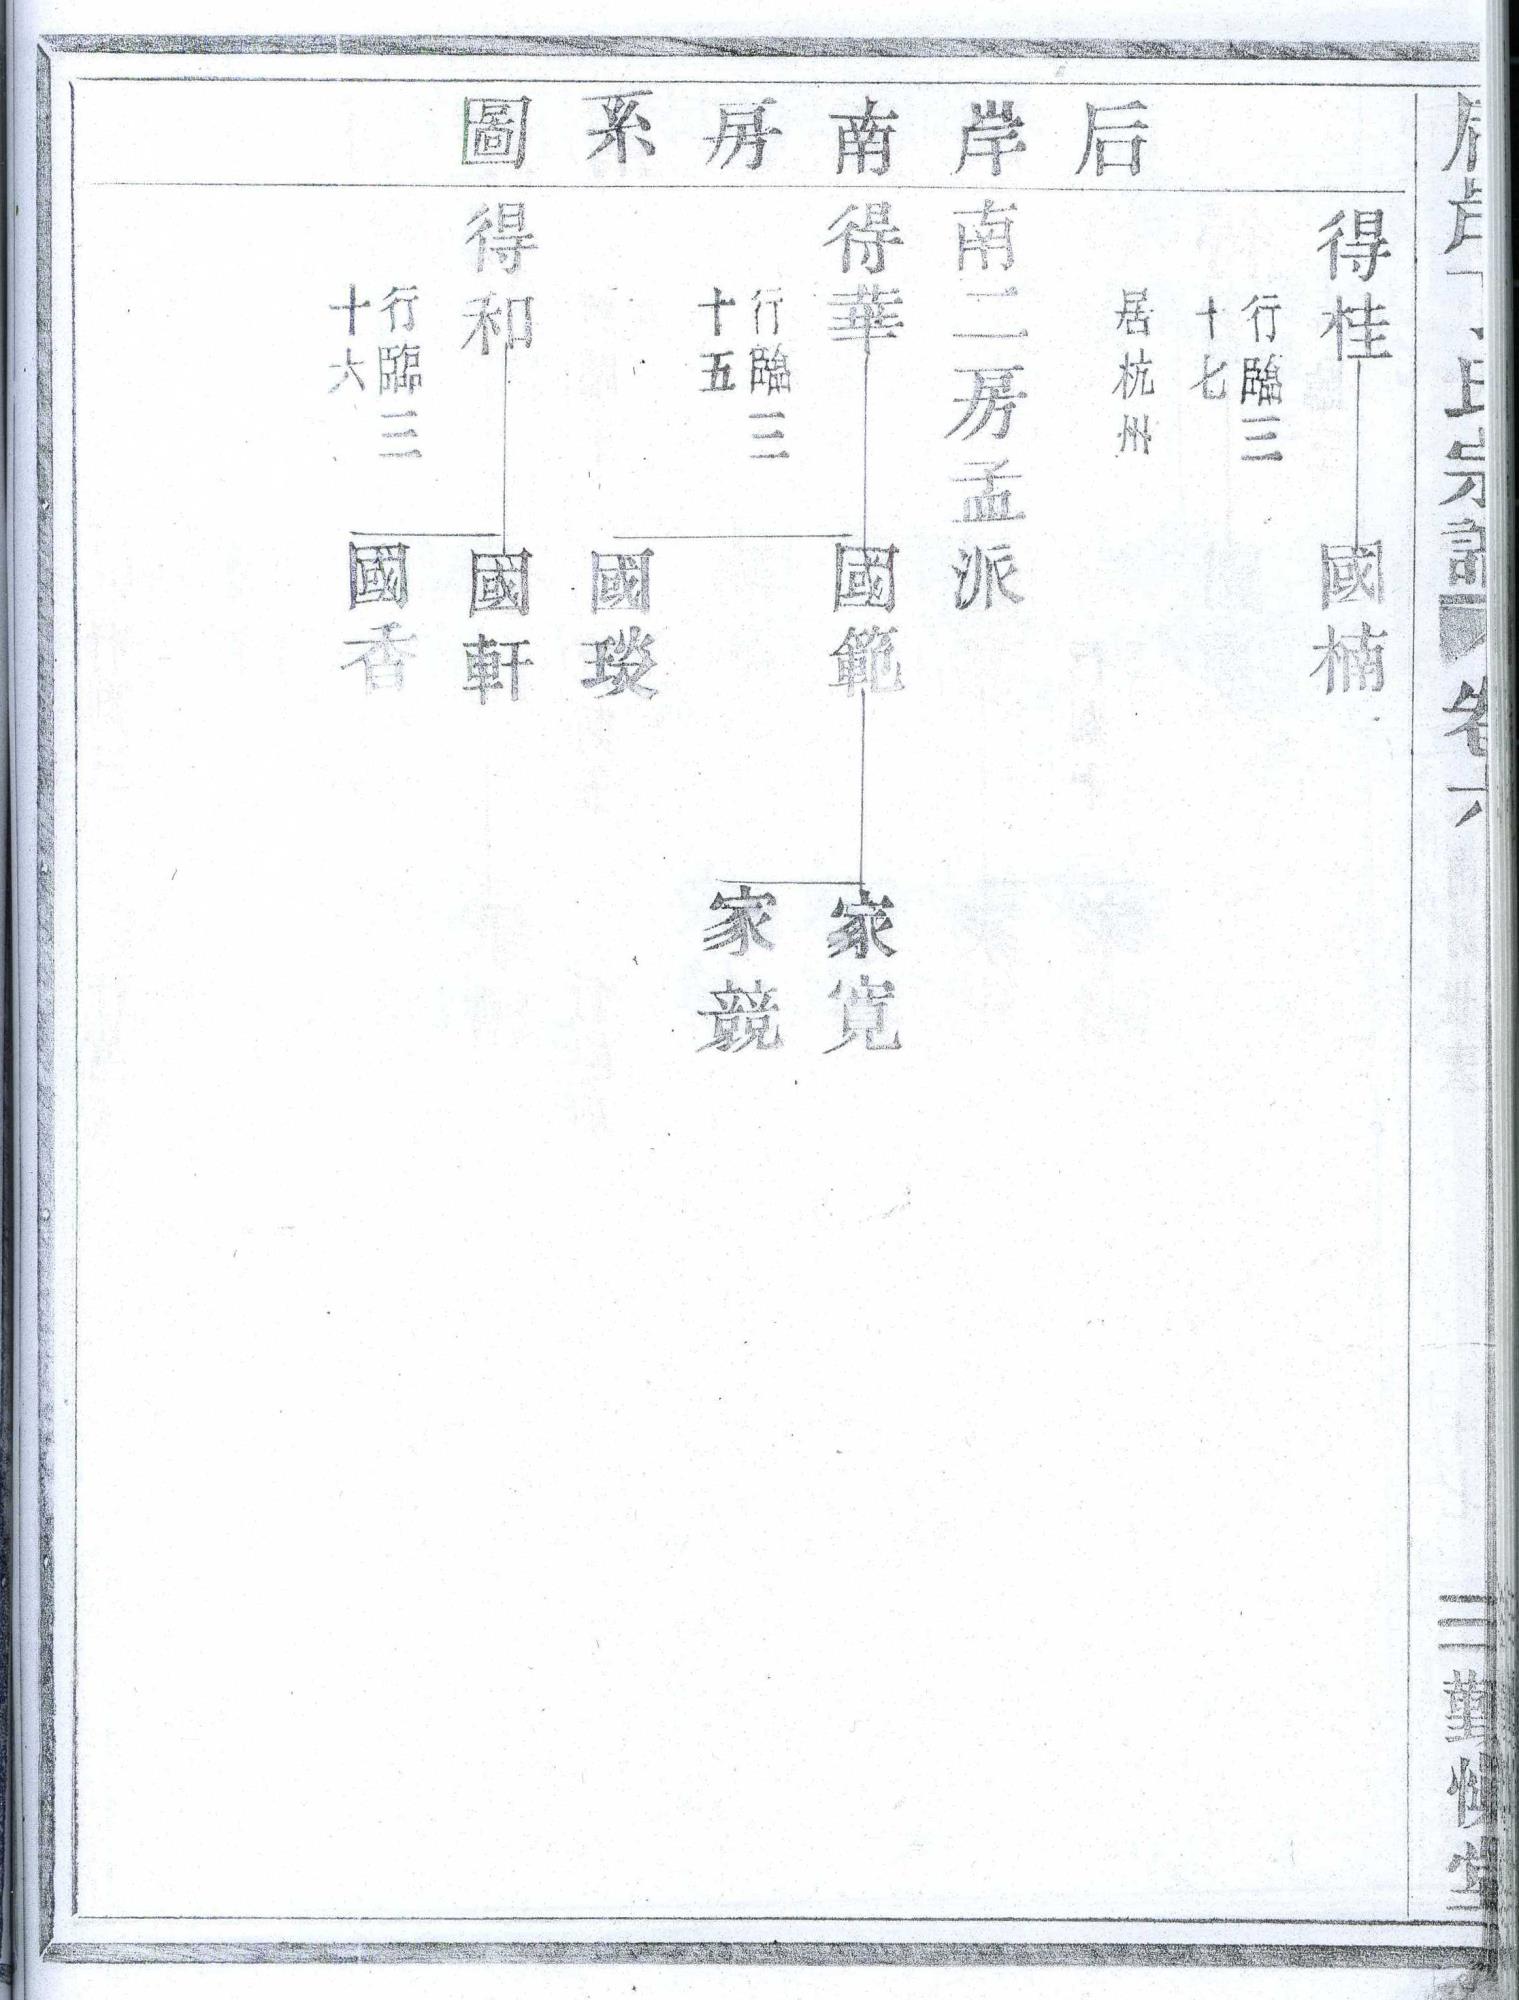 后岸南房系圖
得桂
行臨三
十七
居杭州
國楠
南二房孟派
得華
行臨三
十五
國範
國琰
家寬
家競
得和
行臨三
十六
國軒
國香
氏宗譜
卷六
三
勤慎堂